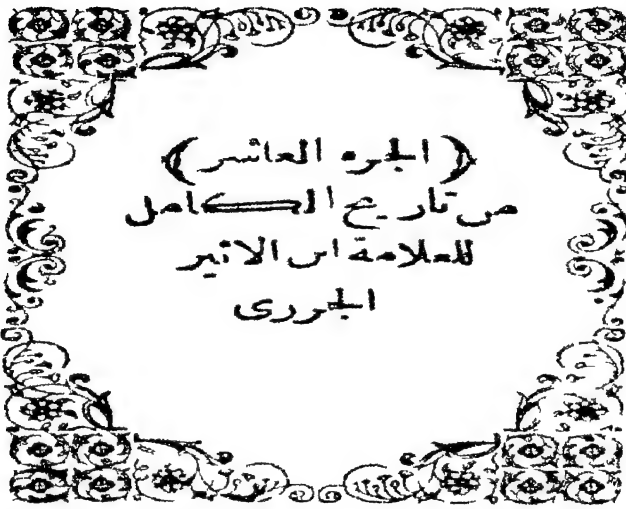 ﴿الجزء العاشر﴾
من تاريخ الكامل
للعلامة ابن الاثير
الجزرى